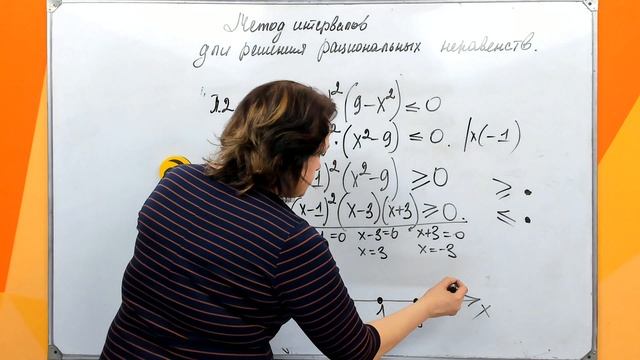 Метод интервалов
для решения рациональных неравенств.
П.2 )² (9-x²) ≤ 0
² · (x²-9) ≤ 0. |x(-1)
1)² (x²-9) ≥ 0
(x-1)² (x-3)(x+3) ≥ 0. ≥ •
≤ •
1=0 x-3=0 x+3=0
x=3 x=-3
1 x